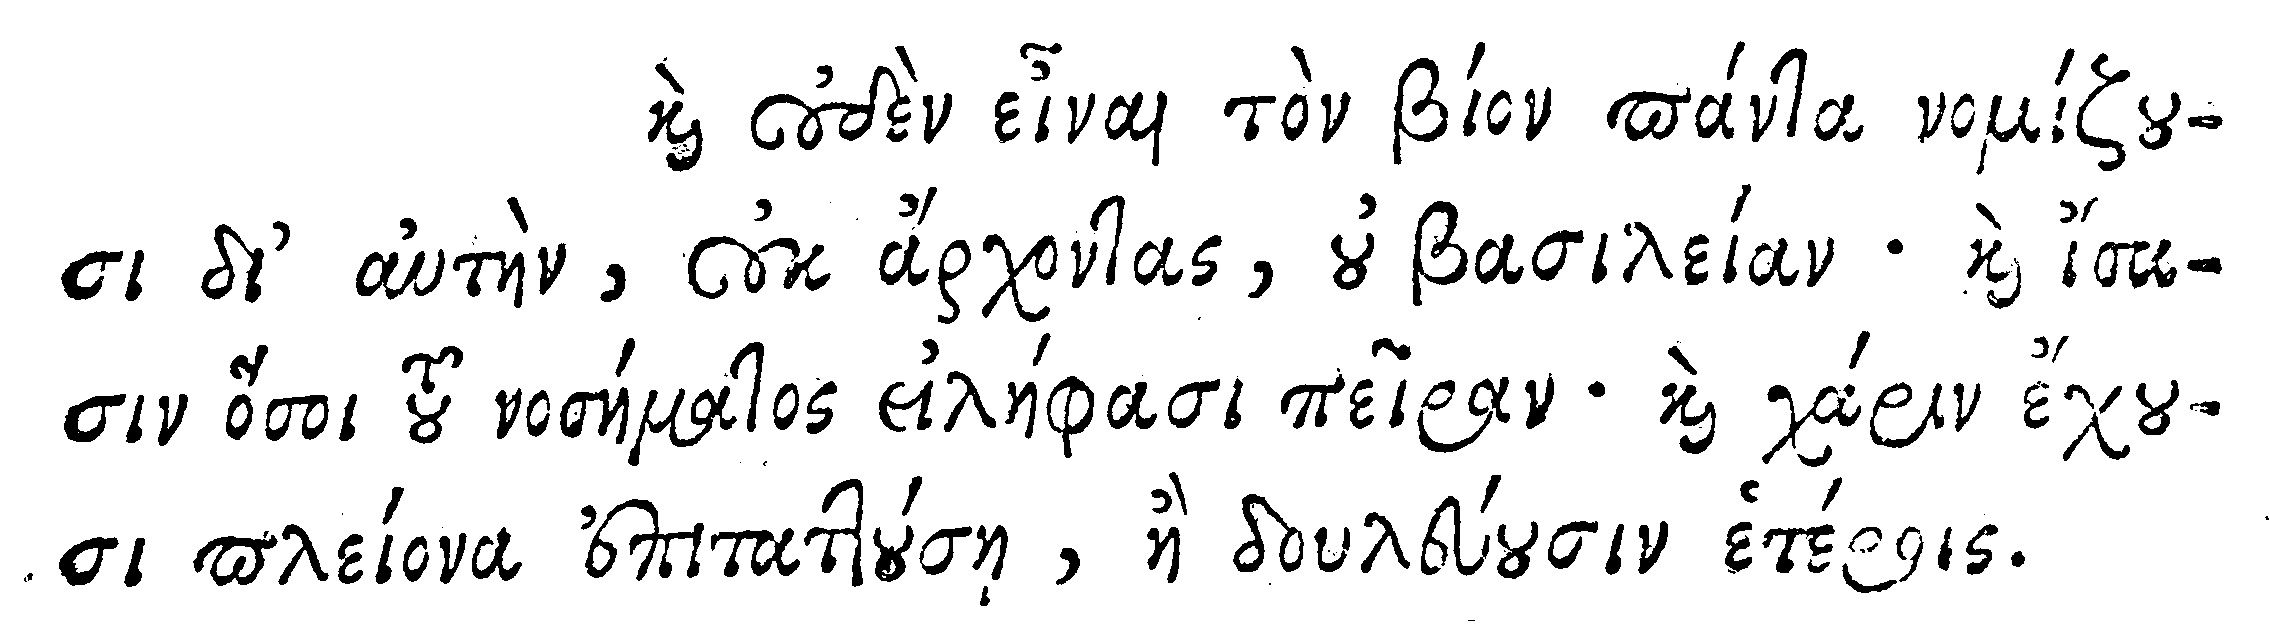 καὶ οὐδὲν εἶναι τὸν βίον πάντα νομίζου-
σι δι' αὐτὴν, οὐκ ἄρχοντας, οὐ βασιλείαν· καὶ ἴσα-
σιν ὅσοι τοῦ νοσήματος εἰλήφασι πεῖραν· καὶ χάριν ἔχου-
σι πλείονα ἐπιταττούσῃ, ἢ δουλεύουσιν ἑτέροις.